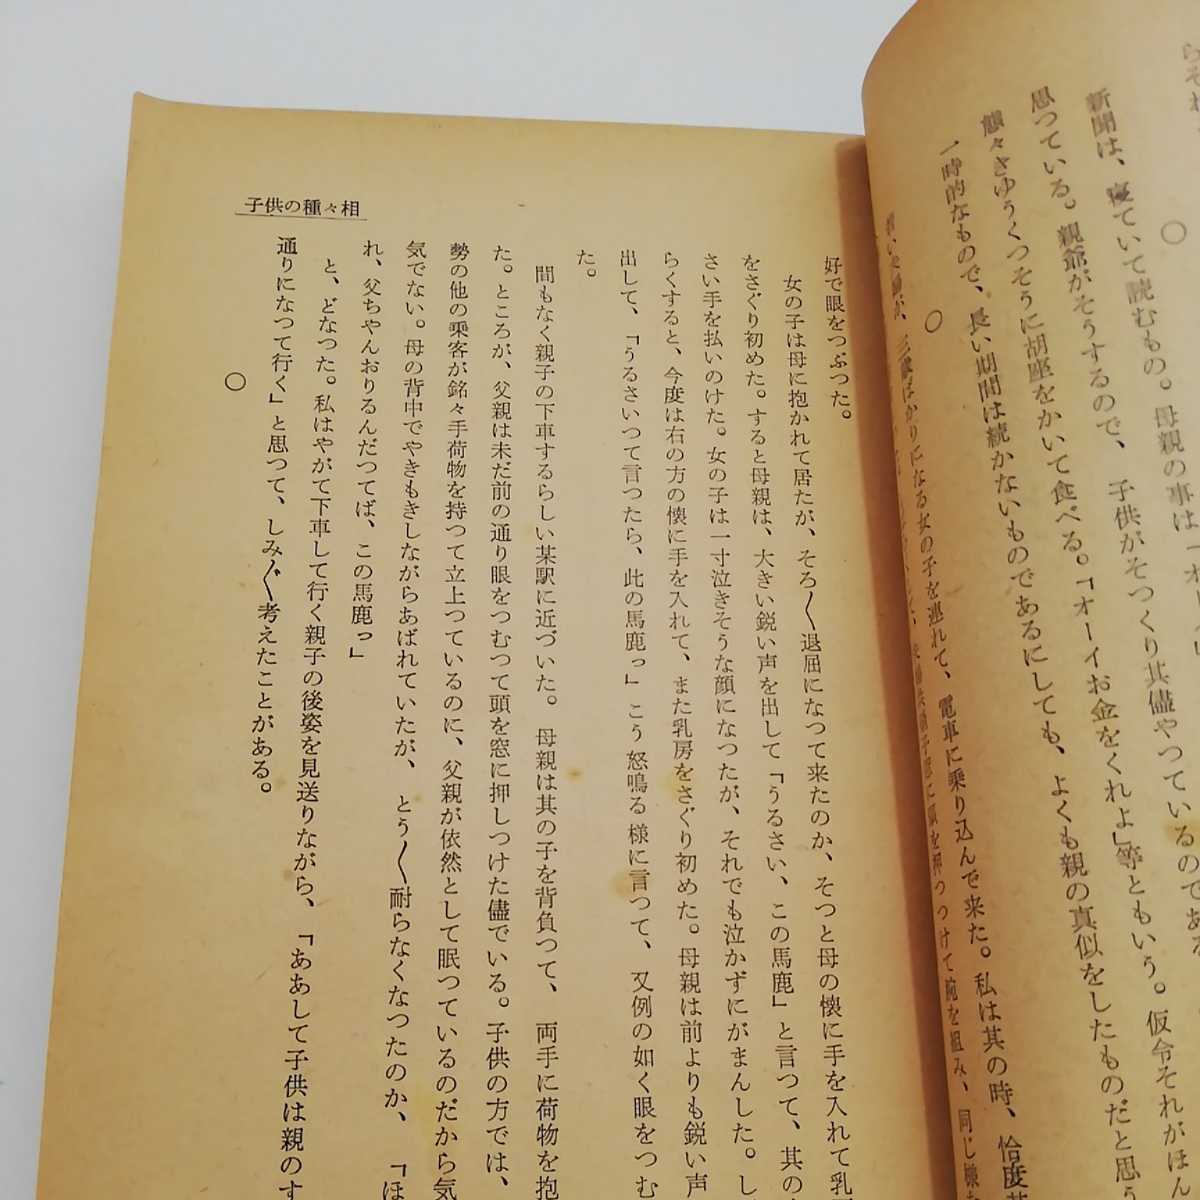 らそれ
○
新聞は、寝ていて読むもの。母親の事は「オー
思つている。親爺がそうするので、子供がそつくり其儘やつているのである
態々きゆうくつそうに胡座をかいて食べる。「オーイお金をくれよ」等ともいう。仮令それがほん
一時的なもので、長い期間は続かないものであるにしても、よくも親の真似をしたものだと思う
○
三歳ばかりになる女の子を連れて、電車に乗り込んで来た。私は其の時、恰度其
窓に頭を押つつけて腕を組み、同じ様な
子供の種々相
好で眼をつぶつた。
女の子は母に抱かれて居たが、そろ〱退屈になつて来たのか、そつと母の懐に手を入れて乳
をさぐり初めた。すると母親は、大きい鋭い声を出して「うるさい、この馬鹿」と言つて、其の
さい手を払いのけた。女の子は一寸泣きそうな顔になつたが、それでも泣かずにがまんした。し
らくすると、今度は右の方の懐に手を入れて、また乳房をさぐり初めた。母親は前よりも鋭い声
出して、「うるさいつて言つたら、此の馬鹿っ」こう怒鳴る様に言つて、又例の如く眼をつむ
た。
間もなく親子の下車するらしい某駅に近づいた。母親は其の子を背負つて、両手に荷物を抱
た。ところが、父親は未だ前の通り眼をつむつて頭を窓に押しつけた儘でいる。子供の方では、
勢の他の乗客が銘々手荷物を持つて立上つているのに、父親が依然として眠つているのだから気
気でない。母の背中でやきもきしながらあばれていたが、とう〱耐らなくなつたのか、「ほ
れ、父ちやんおりるんだつてば、この馬鹿っ」
と、どなつた。私はやがて下車して行く親子の後姿を見送りながら、「ああして子供は親のす
通りになつて行く」と思つて、しみ〲考えたことがある。
○